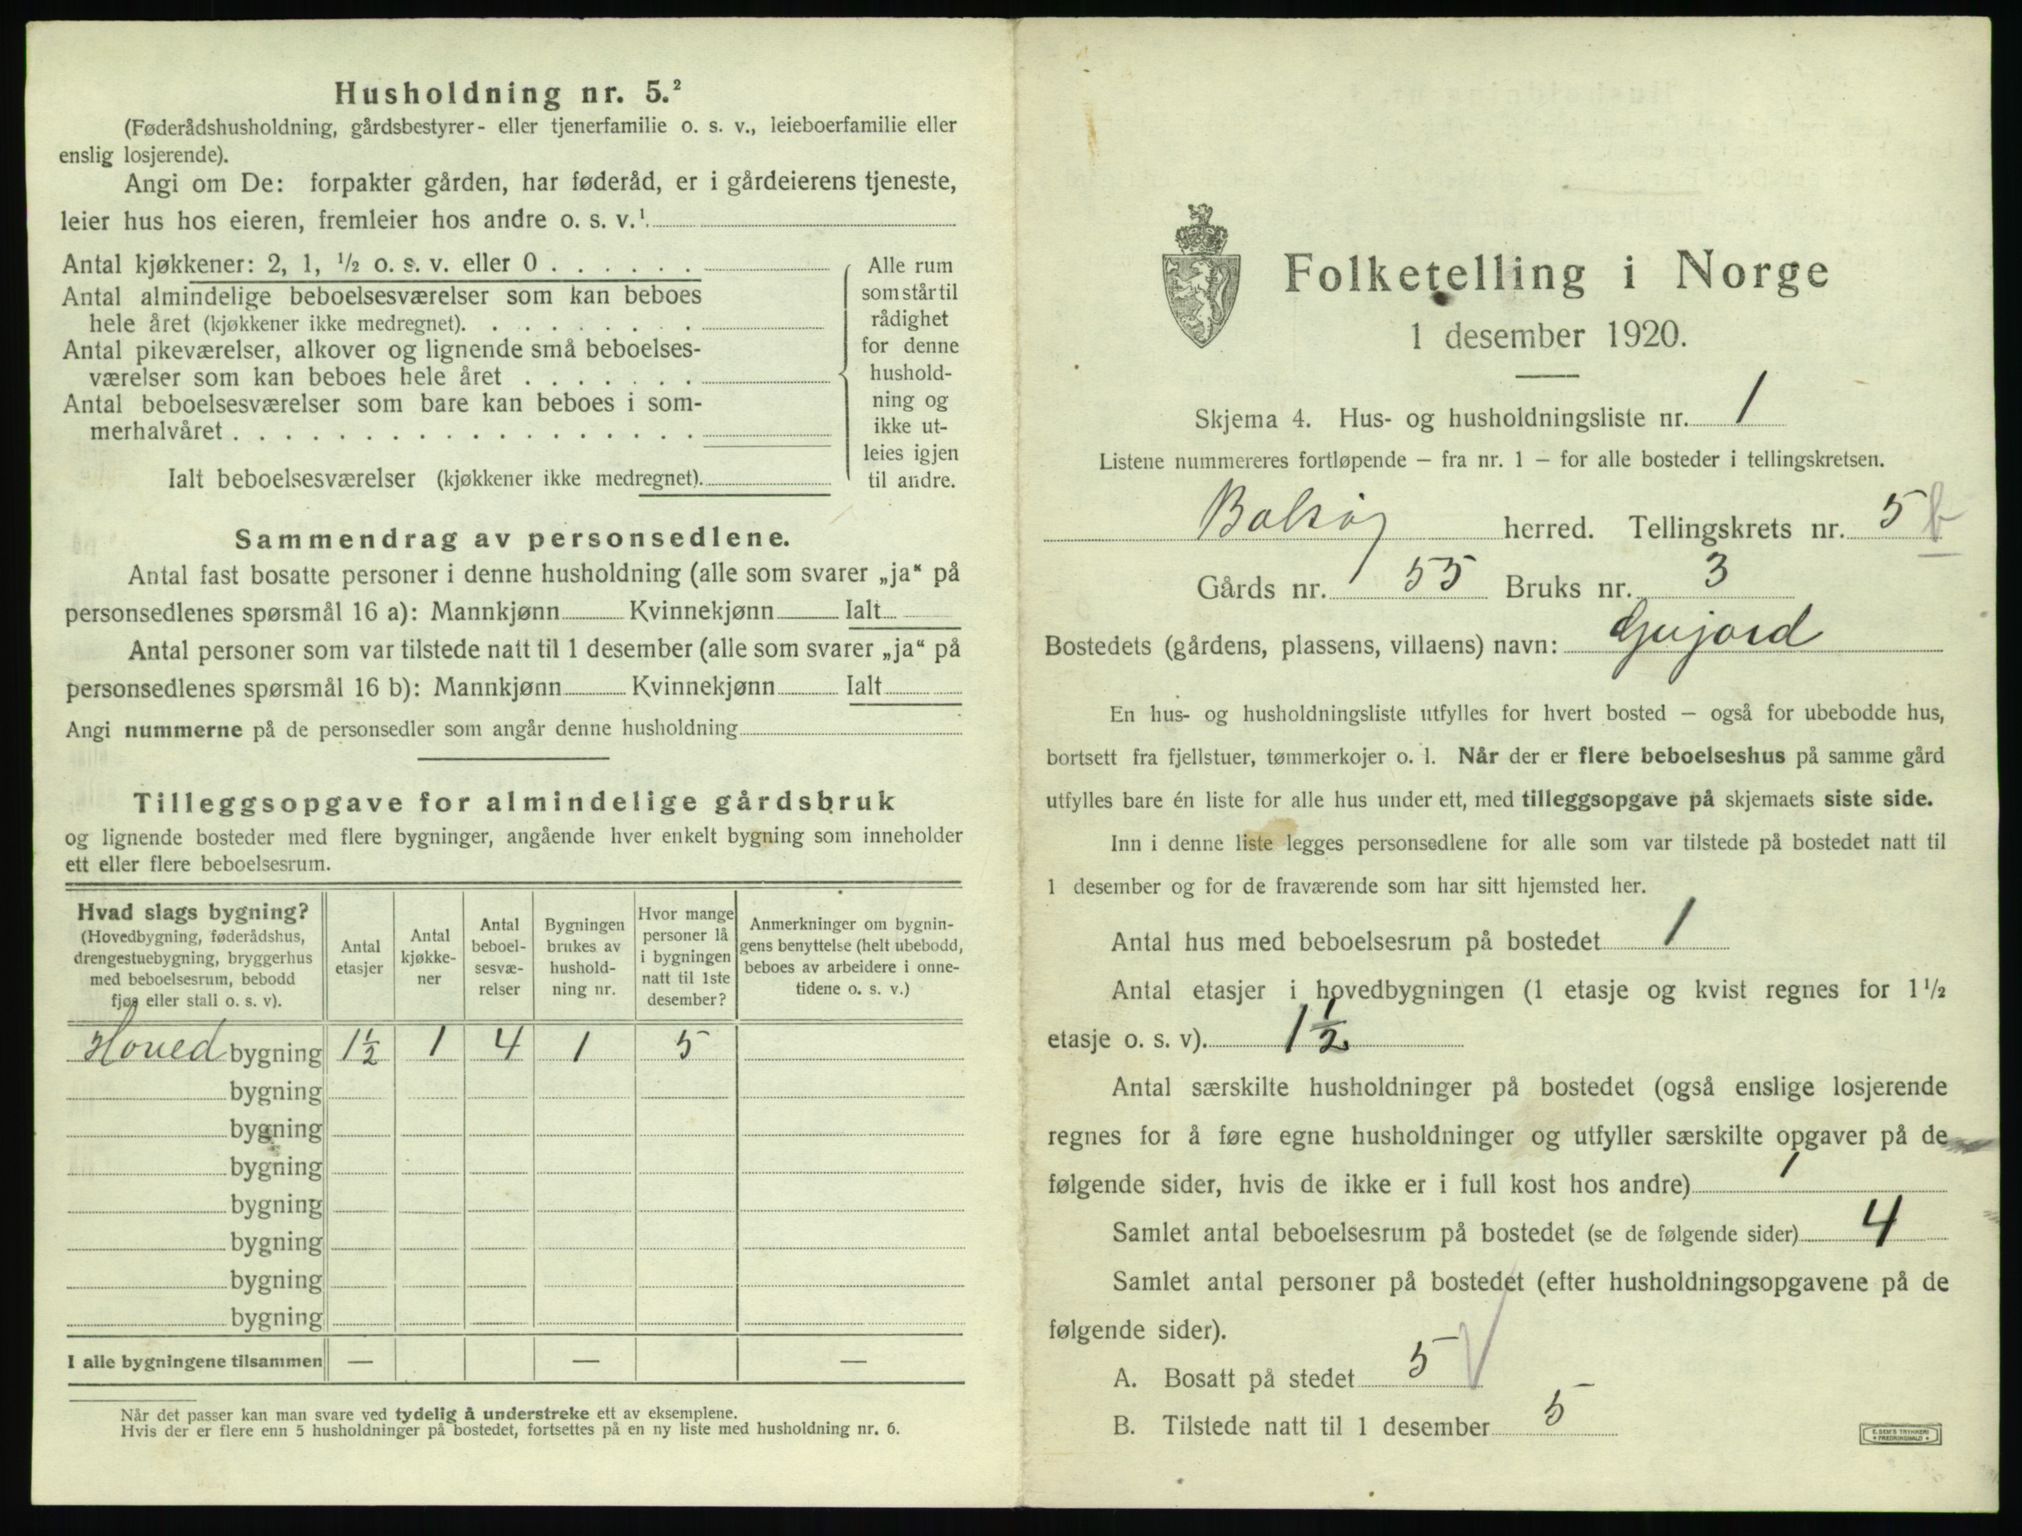 Husholdning nr. 5.²
(Føderådshusholdning, gårdsbestyrer- eller tjenerfamilie o. s. v., leieboerfamilie eller
enslig losjerende).
Angi om De: forpakter gården, har føderåd, er i gårdeierens tjeneste,
leier hus hos eieren, fremleier hos andre o. s. v.¹
Antal kjøkkener: 2, 1, ½ o. s. v. eller 0
Antal almindelige beboelsesværelser som kan beboes
hele året (kjøkkener ikke medregnet).
Antal pikeværelser, alkover og lignende små beboelses-
værelser som kan beboes hele året
Antal beboelsesværelser som bare kan beboes i som-
merhalvåret
Ialt beboelsesværelser (kjøkkener ikke medregnet).
Alle rum
som står til
rådighet
for denne
hushold-
ning og
ikke ut-
leies igjen
til andre.
Sammendrag av personsedlene.
Antal fast bosatte personer i denne husholdning (alle som svarer „ja“ på
personsedlenes spørsmål 16 a): Mannkjønn Kvinnekjønn Ialt
Antal personer som var tilstede natt til 1 desember (alle som svarer „ja“ på
personsedlenes spørsmål 16 b): Mannkjønn Kvinnekjønn Ialt
Angi nummerne på de personsedler som angår denne husholdning
Tilleggsopgave for almindelige gårdsbruk
og lignende bosteder med flere bygninger, angående hver enkelt bygning som inneholder
ett eller flere beboelsesrum.
Hvad slags bygning?
(Hovedbygning, føderådshus,
drengestuebygning, bryggerhus
med beboelsesrum, bebodd
fjøs eller stall o. s. v).
Antal
etasjer
Antal
kjøkke-
ner
Antal
beboel-
sesvæ-
relser
Bygningen
brukes av
hushold-
ning nr.
Hvor mange
personer lå
i bygningen
natt til 1ste
desember?
Anmerkninger om bygnin-
gens benyttelse (helt ubebodd,
beboes av arbeidere i onne-
tidene o. s. v.)
Hoved bygning 1½ 1 4 1 5
bygning
bygning
bygning
bygning
bygning
bygning
bygning
I alle bygningene tilsammen — — —
Når det passer kan man svare ved tydelig å understreke ett av eksemplene.
Hvis der er flere enn 5 husholdninger på bostedet, fortsettes på en ny liste med husholdning nr. 6.
Folketelling i Norge
1 desember 1920.
Skjema 4. Hus- og husholdningsliste nr. 1
Listene nummereres fortløpende – fra nr. 1 – for alle bosteder i tellingskretsen.
Bolsøy herred. Tellingskrets nr. 5 b
Gårds nr. 55 Bruks nr. 3
Bostedets (gårdens, plassens, villaens) navn: Gujord
En hus- og husholdningsliste utfylles for hvert bosted – også for ubebodde hus,
bortsett fra fjellstuer, tømmerkojer o. l. Når der er flere beboelseshus på samme gård
utfylles bare én liste for alle hus under ett, med tilleggsopgave på skjemaets siste side.
Inn i denne liste legges personsedlene for alle som var tilstede på bostedet natt til
1 desember og for de fraværende som har sitt hjemsted her.
Antal hus med beboelsesrum på bostedet 1
Antal etasjer i hovedbygningen (1 etasje og kvist regnes for 1½
etasje o. s. v). 1½
Antal særskilte husholdninger på bostedet (også enslige losjerende
regnes for å føre egne husholdninger og utfyller særskilte opgaver på de
følgende sider, hvis de ikke er i full kost hos andre) 1
Samlet antal beboelsesrum på bostedet (se de følgende sider) 4
Samlet antal personer på bostedet (efter husholdningsopgavene på de
følgende sider).
A. Bosatt på stedet 5
B. Tilstede natt til 1 desember 5
E. SEM'S TRYKKERI
FREDRIKSHALD